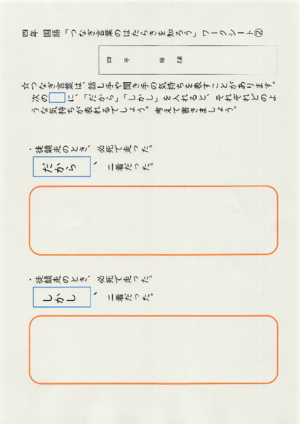 四年 国語「つなぎ言葉のはたらきを知ろう」ワークシート②
四 年 組 名前
☆つなぎ言葉は、話し手や聞き手の気持ちを表すことがあります。
次の□に、「だから」「しかし」を入れると、それぞれどのよ
うな気持ちが表れるでしょう。考えて書きましょう。
・徒競走のとき、必死で走った。
だから、二着だった。
・徒競走のとき、必死で走った。
しかし、二着だった。